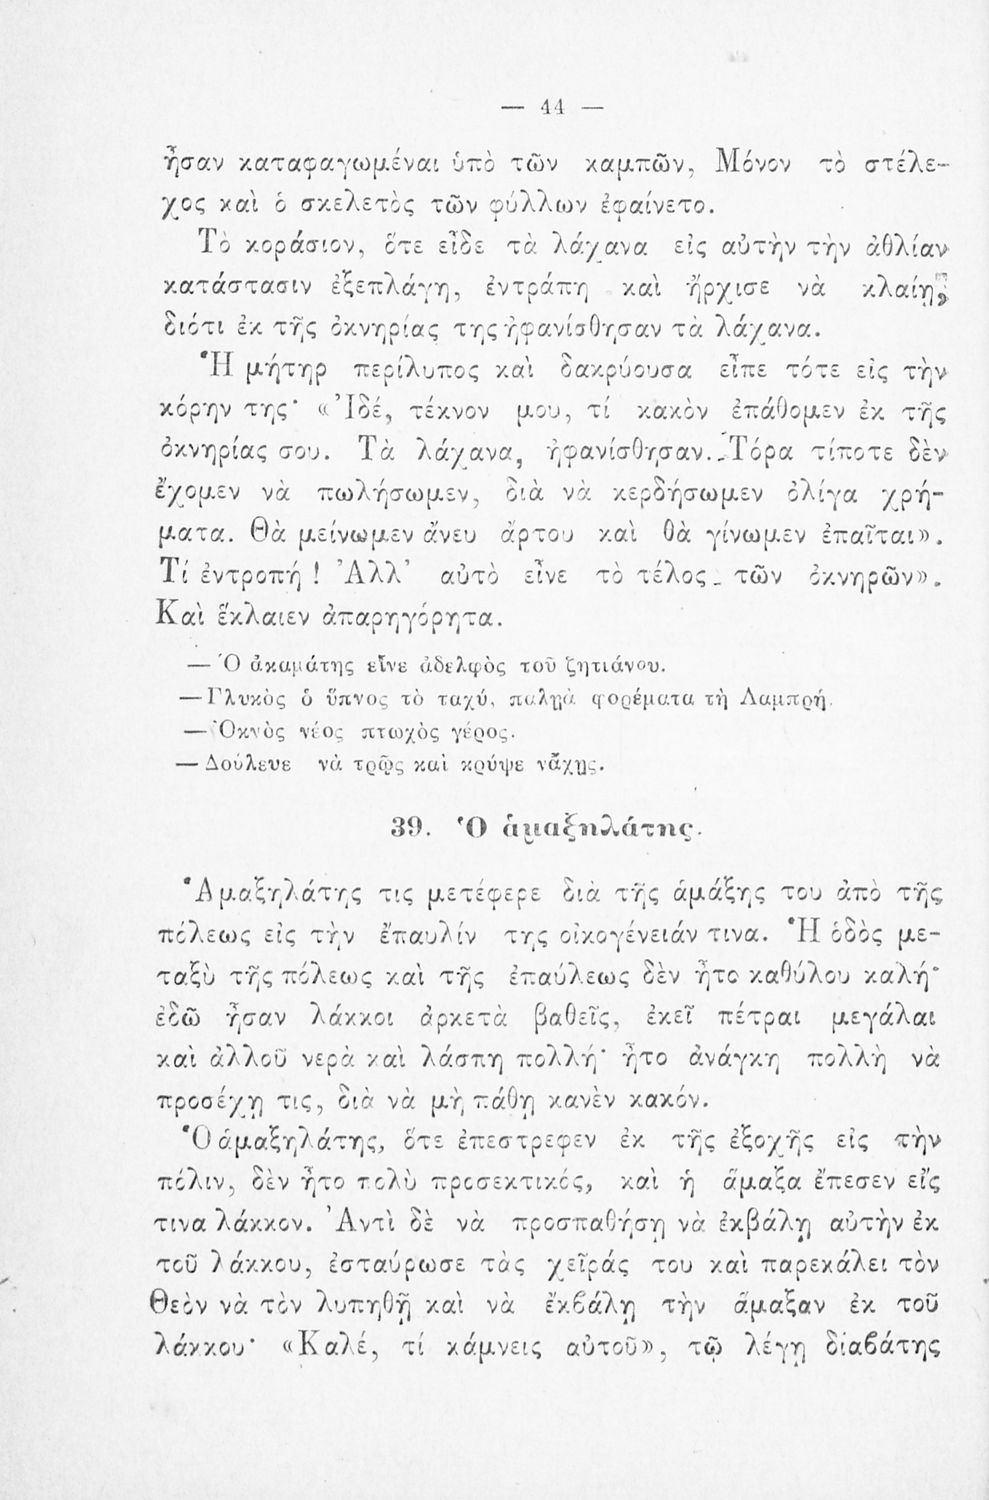 — 44 —
ἦσαν καταφαγωμέναι ὑπὸ τῶν καμπῶν, Μόνον τὸ στέλε-
χος καὶ ὁ σκελετὸς τῶν φύλλων ἐφαίνετο.
Τὸ κοράσιον, ὅτε εἶδε τὰ λάχανα εἰς αὐτὴν τὴν ἀθλίαν
κατάστασιν ἐξεπλάγη, ἐντράπη καὶ ἤρχισε νὰ κλαίῃ,
διότι ἐκ τῆς ὀκνηρίας της ἠφανίσθησαν τὰ λάχανα.
Ἡ μήτηρ περίλυπος καὶ δακρύουσα εἶπε τότε εἰς τὴν
κόρην της· «Ἰδέ, τέκνον μου, τί κακὸν ἐπάθομεν ἐκ τῆς
ὀκνηρίας σου. Τὰ λάχανα, ἠφανίσθησαν. Τόρα τίποτε δὲν
ἔχομεν νὰ πωλήσωμεν, διὰ νὰ κερδήσωμεν ὀλίγα χρή-
ματα. Θὰ μείνωμεν ἄνευ ἄρτου καὶ θὰ γίνωμεν ἐπαῖται».
Τί ἐντροπή! Ἀλλ' αὐτὸ εἶνε τὸ τέλος τῶν ὀκνηρῶν».
Καὶ ἔκλαιεν ἀπαρηγόρητα.
— Ὁ ἀκαμάτης εἶνε ἀδελφὸς τοῦ ζητιάνου.
— Γλυκὸς ὁ ὕπνος τὸ ταχύ, παλῃὰ φορέματα τὴ Λαμπρή.
— Ὀκνὸς νέος πτωχὸς γέρος.
— Δούλευε νὰ τρῷς καὶ κρύψε νἄχῃς.
39. Ὁ ἁμαξηλάτης.
Ἁμαξηλάτης τις μετέφερε διὰ τῆς ἁμάξης του ἀπὸ τῆς
πόλεως εἰς τὴν ἔπαυλίν της οἰκογένειάν τινα. Ἡ ὁδὸς με-
ταξὺ τῆς πόλεως καὶ τῆς ἐπαύλεως δὲν ἦτο καθύλου καλή·
ἐδῶ ἦσαν λάκκοι ἀρκετὰ βαθεῖς, ἐκεῖ πέτραι μεγάλαι
καὶ ἀλλοῦ νερὰ καὶ λάσπη πολλή· ἦτο ἀνάγκη πολλὴ νὰ
προσέχῃ τις, διὰ νὰ μὴ πάθῃ κανὲν κακόν.
Ὁ ἁμαξηλάτης, ὅτε ἐπεστρεφεν ἐκ τῆς ἐξοχῆς εἰς τὴν
πόλιν, δὲν ἦτο πολὺ προσεκτικός, καὶ ἡ ἅμαξα ἔπεσεν εἴς
τινα λάκκον. Ἀντὶ δὲ νὰ προσπαθήσῃ νὰ ἐκβάλῃ αὐτὴν ἐκ
τοῦ λάκκου, ἐσταύρωσε τὰς χεῖράς του καὶ παρεκάλει τὸν
Θεὸν νὰ τὸν λυπηθῇ καὶ νὰ ἐκβάλῃ τὴν ἅμαξαν ἐκ τοῦ
λάκκου· «Καλέ, τί κάμνεις αὐτοῦ», τῷ λέγῃ διαβάτης